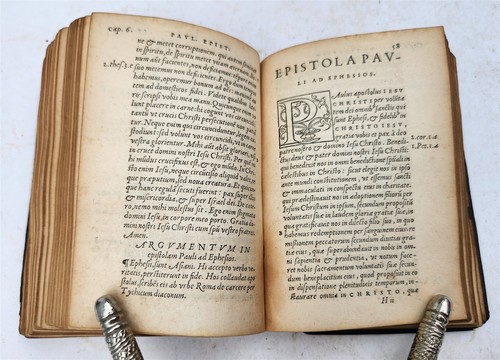 cap. 6.
PAVL. EPIST.
ne & metet corruptionem. qui autem seminat
in spiritu, de spiritu metet vitam æternam. Bo
num aūt facientes, non deficiamus: tempore enim
2. thes. 3. c suo metemus non deficientes. Ergo dum tempus
habemus, operemur bonum ad omnes, maxime au
tem ad domesticos fidei. Videte qualibus lite-
ris scripsi vobis mea manu. Quicunque enim vo-
lunt placere in carne, hi cogunt vos circuncidi, tan
tum vt crucis Christi persecutionem non patian-
tur. Neque enim qui circunciduntur, legem cu-
stodiunt: sed volunt vos circuncidi, vt in carne
vestra glorientur. Mihi aūt absit gloriari, nisi in
cruce domini nostri Iesu Christi. Per quem mi-
hi mūdus crucifixus est, & ego mūdo. In Christo
enim Iesu, neque circūcisio aliquid valet, ne-
que præputium, sed noua creatura. Et quicun-
que hanc regulā secuti fuerint: pax super illos,
& misericordia, & super Israel dei. De cæte-
ro, nemo mihi molestus sit. Ego enim stigmata
domini Iesu, in corpore meo porto. Gratia do-
mini nostri Iesu Christi cum spiritu vestro fratres
Amen.
ARGVMENTVM IN
epistolam Pauli ad Ephesios.
¶ Ephesij sunt Asiani. Hi accepto verbo ve-
ritatis, perstiterunt in fide. Hos collaudat apo-
stolus, scribēs eis ab vrbe Roma de carcere per
Tychicum diaconum.
58
EPISTOLA PAV-
LI AD EPHESIOS.
PAulus apostolus IESV
CHRISTI per volūta
tem dei omnibº sanctis qui
sunt Ephesi, & fidelibº in
CHRISTO IESV,
gratia vobis et pax à deo
patre nostro & domino Iesu Christo. Benedictus
2. cor. 1. a
deus & pater domini nostri Iesu Christi:
1. Pet. 1. a
qui benedixit nos in omni benedictione spūali in
cælestibus in Christo: sicut elegit nos in ipso ante
mundi constitutionem, vt essemus sancti
& immaculati in conspectu eius in charitate.
qui prædestinauit nos in adoptionem filiorū per
Iesum Christum in ipsum, secundum propositū
voluntatis suæ in laudem gloriæ gratiæ suæ, in
qua gratificauit nos in dilecto filio suo, in quo
b habemus redemptionem per sanguinem eius, re-
missionem peccatorum secundum diuitias gra-
tiæ eius, quæ superabundauit in nobis in om-
ni sapientia & prudentia, vt notum face-
ret nobis sacramentum voluntatis suæ secun-
dum beneplacitum eius, quod proposuit in eo
in dispensatione plenitudinis temporum, in-
staurare omnia in CHRISTO, quæ
H ii